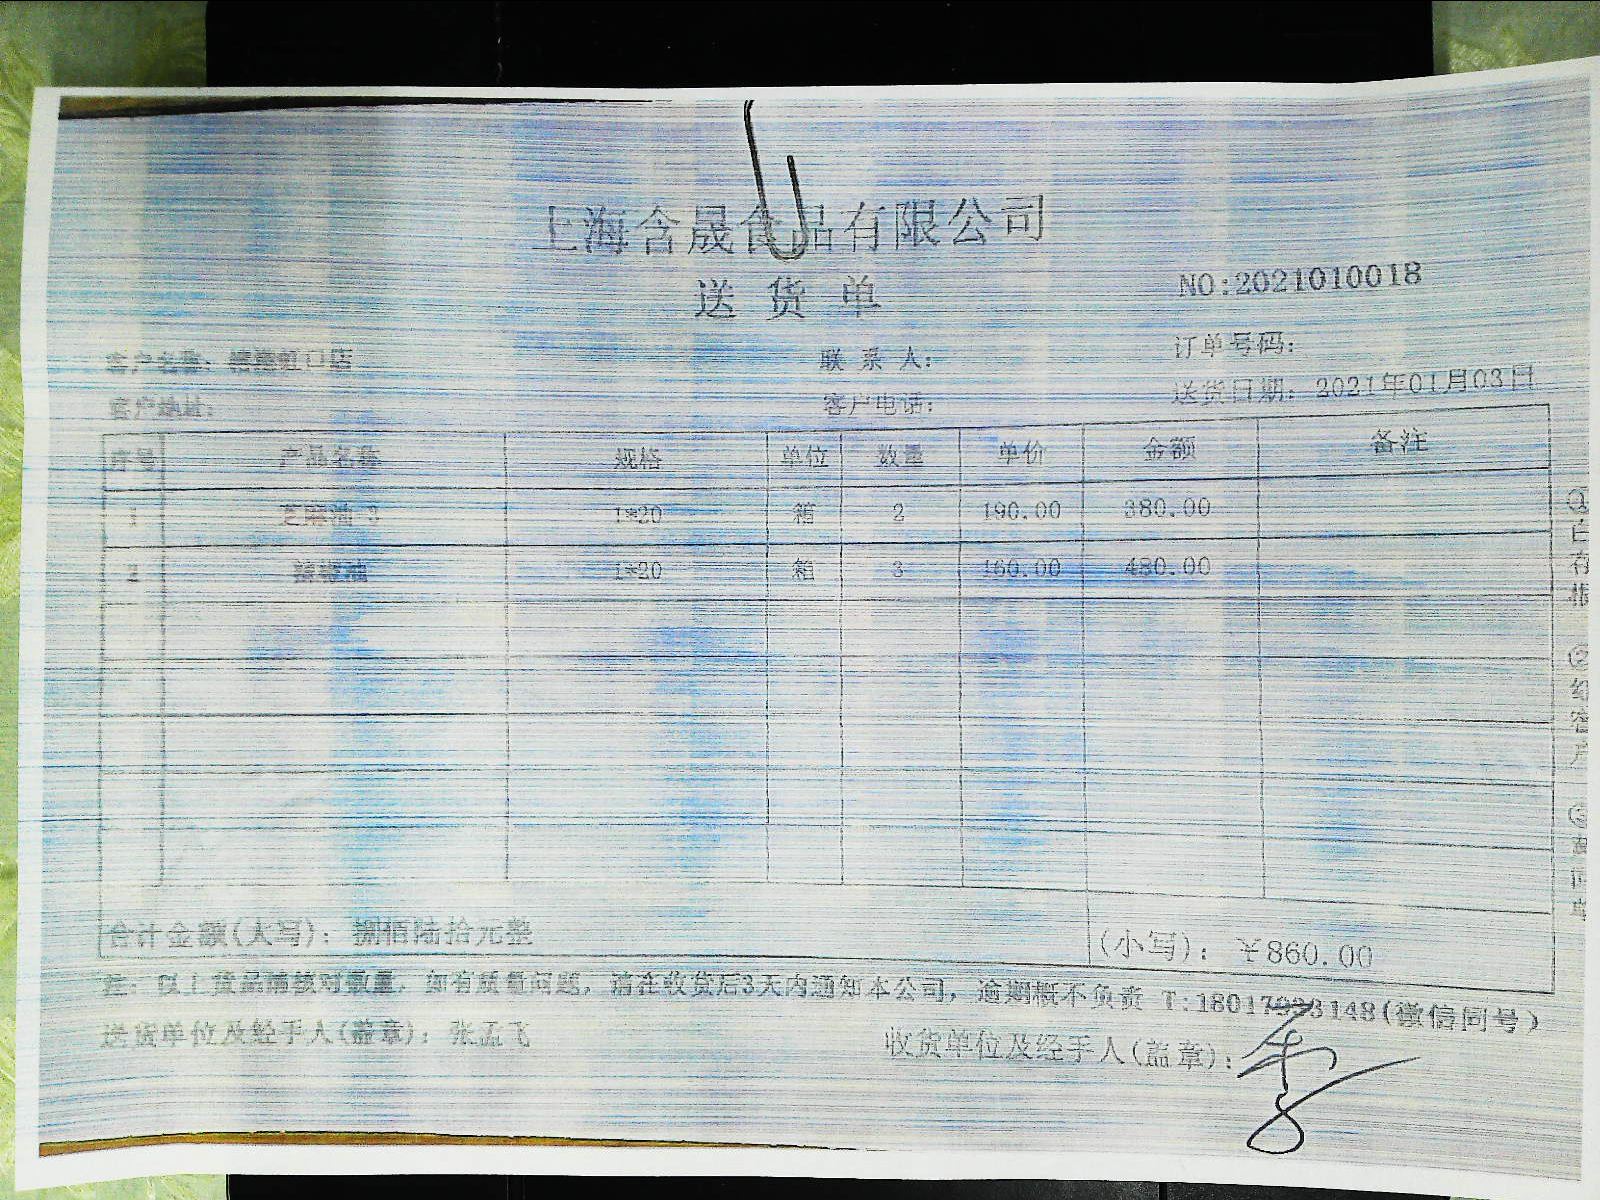 上海含晟食品有限公司
送货单
NO:2021010018
客户名称： 虹口店
联系人：
订单号码：
客户地址：
客户电话：
送货日期：2021年01月03日
序号 产品名称 规格 单位 数量 单价 金额 备注
1 芝麻油 1*20 箱 2 190.00 380.00
2 1*20 箱 3 160.00 480.00
合计金额(大写)：捌佰陆拾元整
(小写)：￥860.00
注：以上货品请核对数量，如有质量问题，请在收货后3天内通知本公司，逾期概不负责 T:18017 3148(微信同号)
送货单位及经手人(盖章)：张孟飞
收货单位及经手人(盖章)：
①白存根 ②红客户 ③